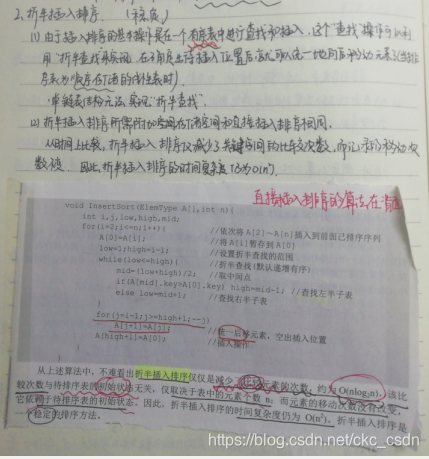 2. 折半插入排序. (稳定)
(1) 由于插入排序的基本操作是在一个有序表中进行查找和插入, 这个"查找"操作可以利
用"折半查找"来实现,
单链表结构无法实现"折半查找".
(2) 折半插入排序所需附加存储空间和直接插入排序相同.
从时间上比较, 折半插入排序仅减少了关键字间的比较次数, 而记录的移动次
数不变. 因此, 折半插入排序的时间复杂度仍为O(n²).
直接插入排序的算法在背面
void InsertSort(ElemType A[],int n){
int i,j,low,high,mid;
for(i=2;i<=n;i++){ //依次将A[2]~A[n]插入到前面已排序序列
A[0]=A[i]; //将A[i]暂存到A[0]
low=1;high=i-1; //设置折半查找的范围
while(low<=high){ //折半查找(默认递增有序)
mid=(low+high)/2; //取中间点
if(A[mid].key>A[0].key) high=mid-1; //查找左半子表
else low=mid+1; //查找右半子表
}
for(j=i-1;j>=high+1;--j)
A[j+1]=A[j]; //统一后移元素,空出插入位置
A[high+1]=A[0]; //插入操作
从上述算法中,不难看出折半插入排序仅仅是减少了比较元素的次数,约为O(nlog₂n),该比
较次数与待排序表的初始状态无关,仅取决于表中的元素个数n;而元素的移动次数没有改变,
它依赖于待排序表的初始状态。因此,折半插入排序的时间复杂度仍为O(n²)。折半插入排序是
稳定的排序方法。
https://blog.csdn.net/ckc_csdn